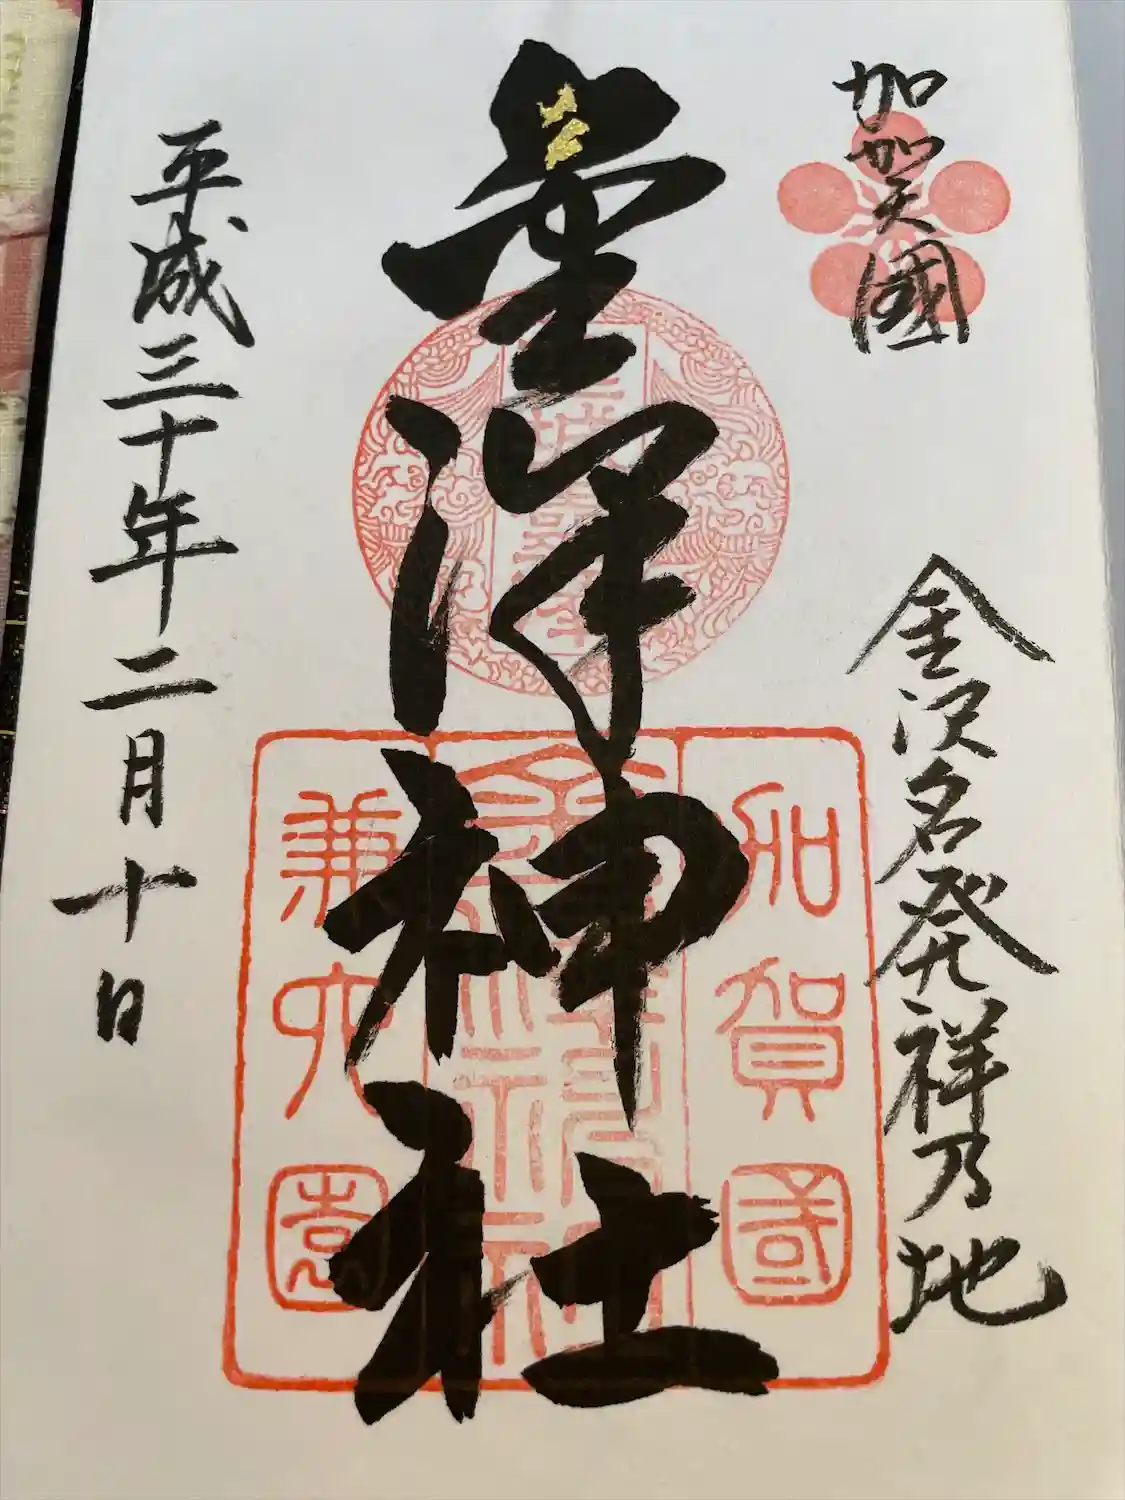 加賀國
金沢名発祥乃地
金澤神社
平成三十年二月十日
加賀國
兼六園